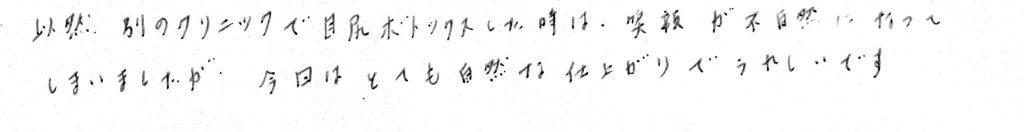 以然 別のクリニックで目尻ボトックスした時は、笑顔が不自然になって
しまいましたが 今回はとても自然な仕上がりでうれしいです